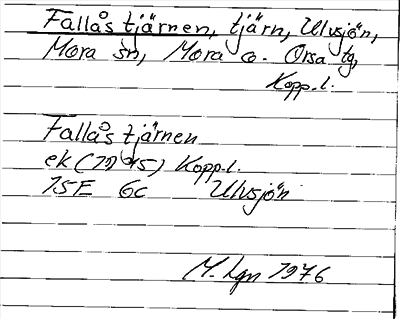 Fallåstjärnen, tjärn, Ulvsjön,
Mora sn, Mora o. Orsa tg,
Kopp.l.
Fallåstjärnen
ek (1945) Kopp.l.
15E 6c Ulvsjön
M. Lgn 1976